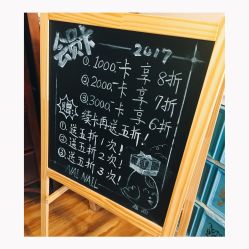 会员卡
2017
①.1000.-卡 享 8折
②2000.-卡 享 7折
③3000-卡 享 6折!
续卡再送五折!
① 送五折 1次!
② 送五折 2次!
③ 送五折 3次!
NAIL